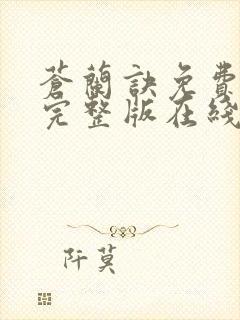 蒼蘭訣免費
完整版在綫
阡莫